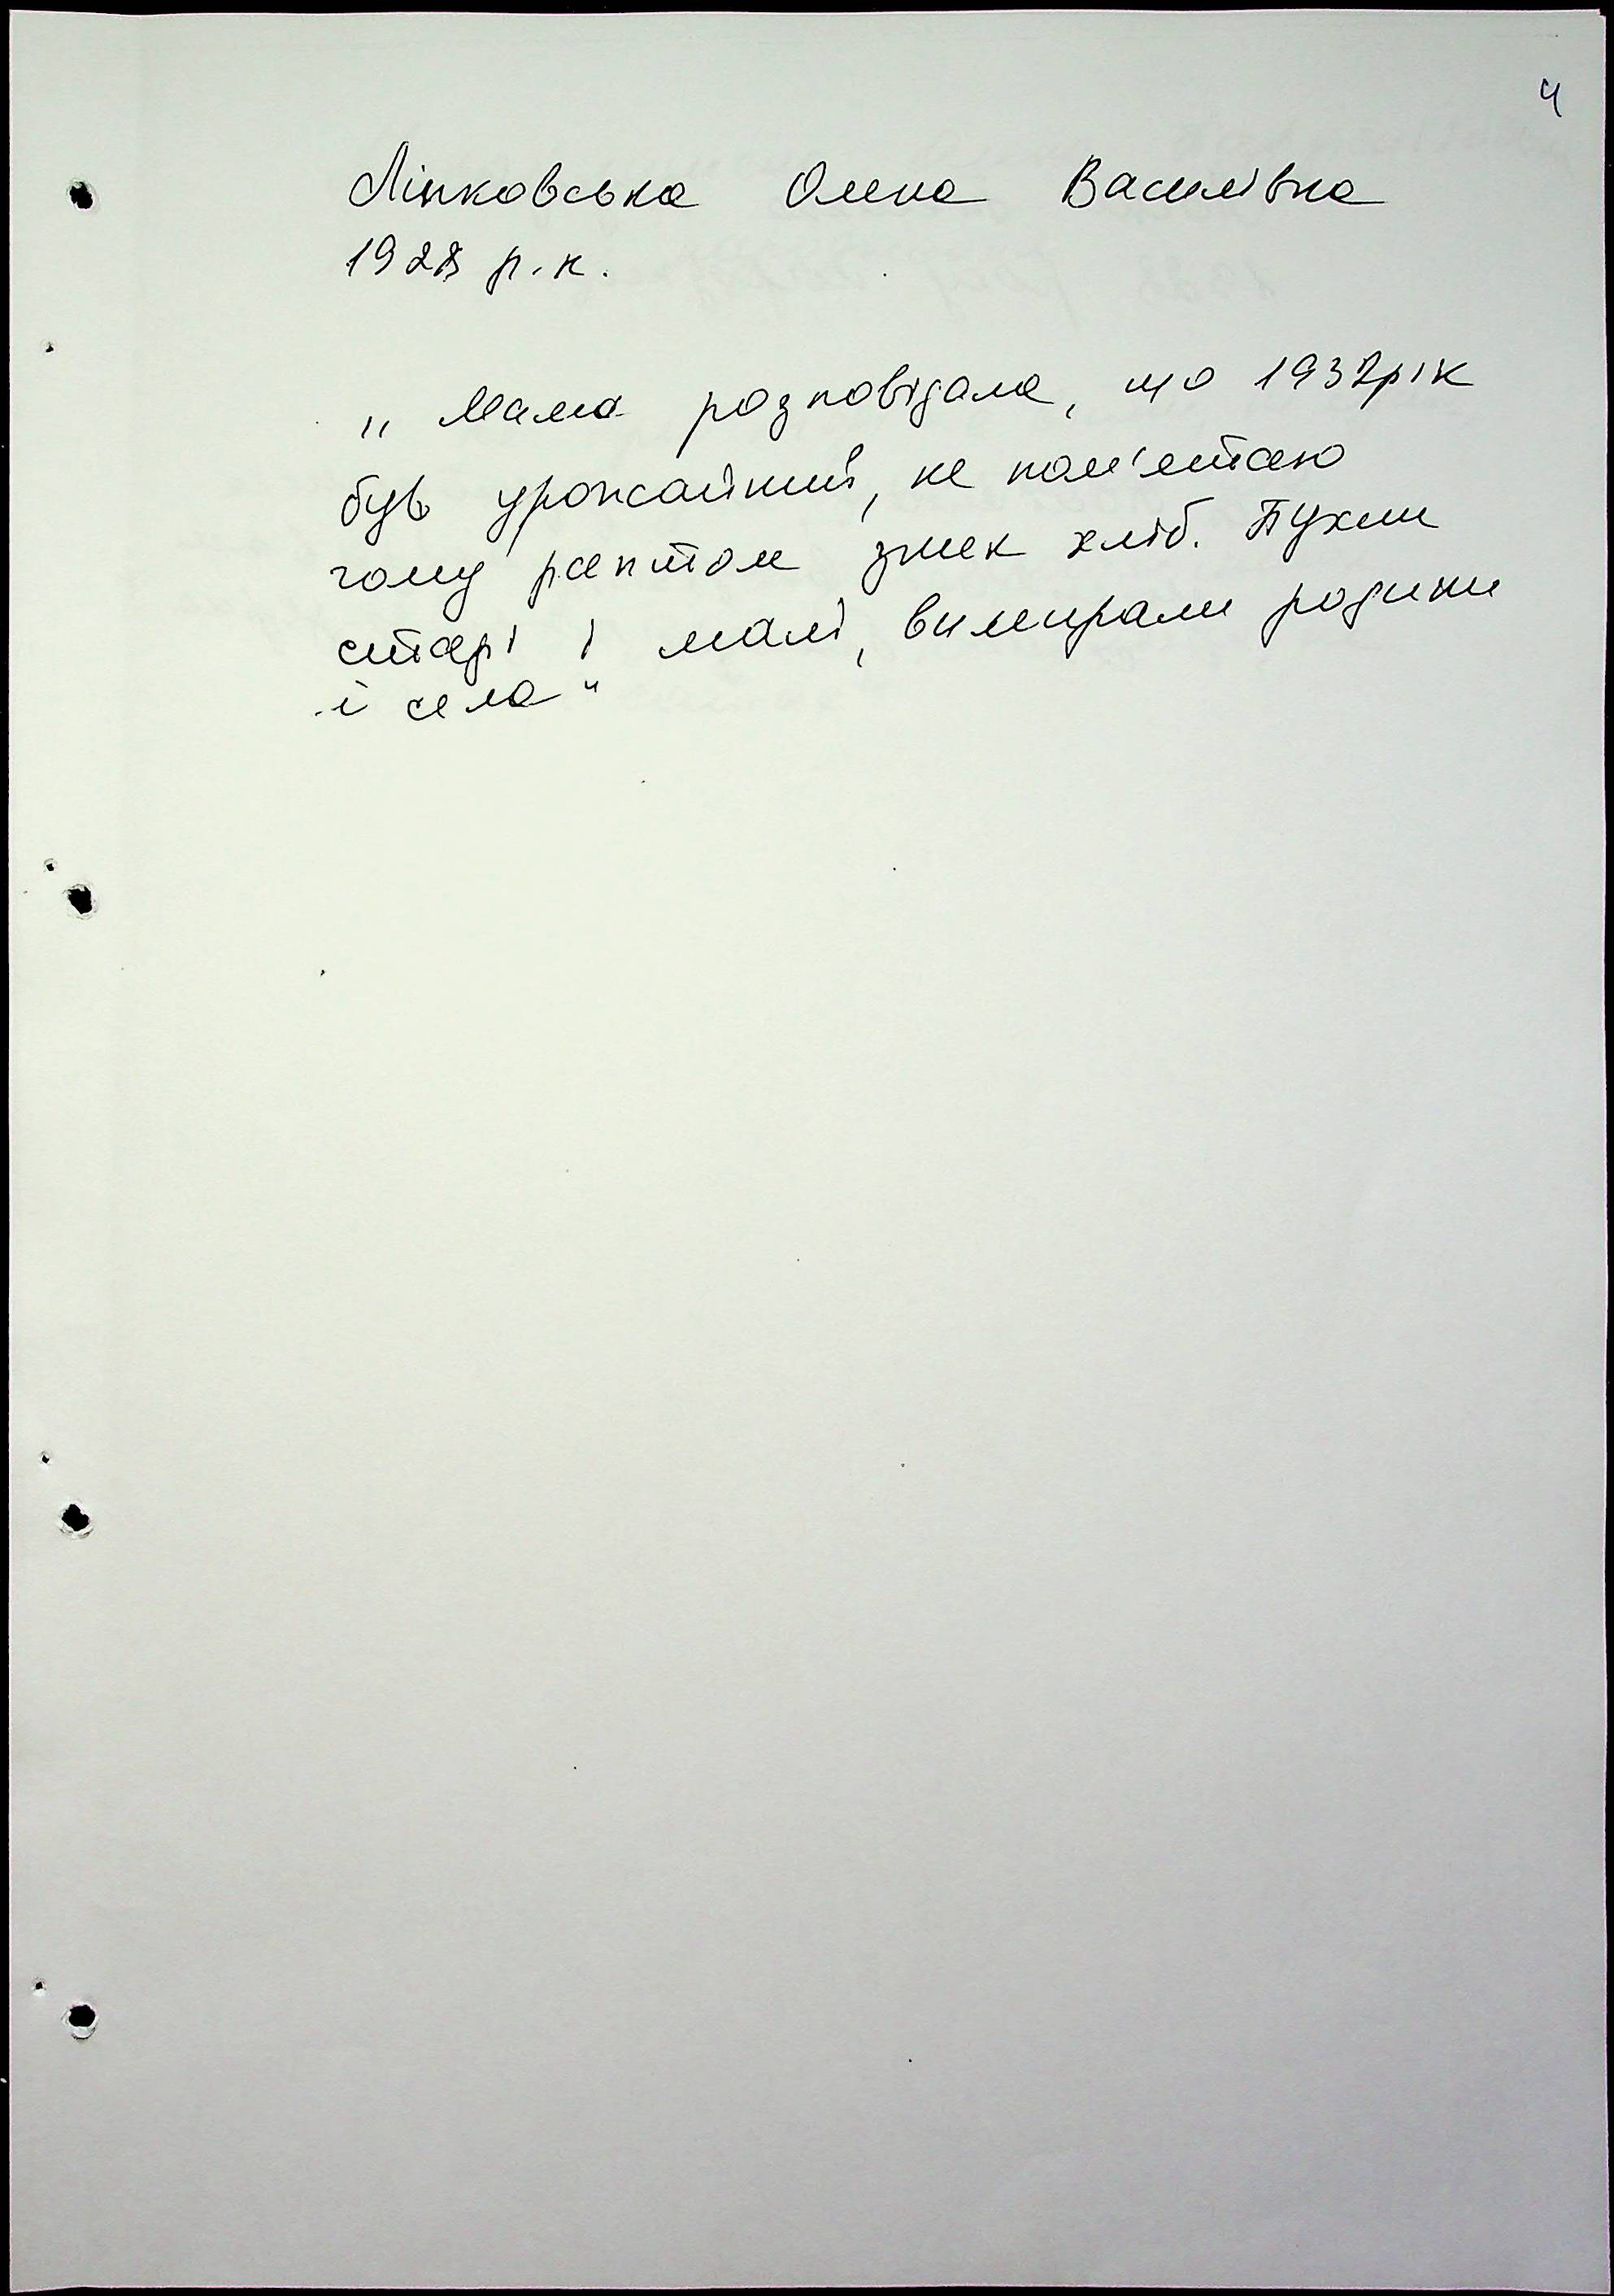 4
Ліпковська Олена Василівна
р.н.
„Мама розповідала, що 1932рік
був урожайний, не пам'ятаю
чому раптом зник хліб. Пухли
старі і малі, вимирали родини
і села“